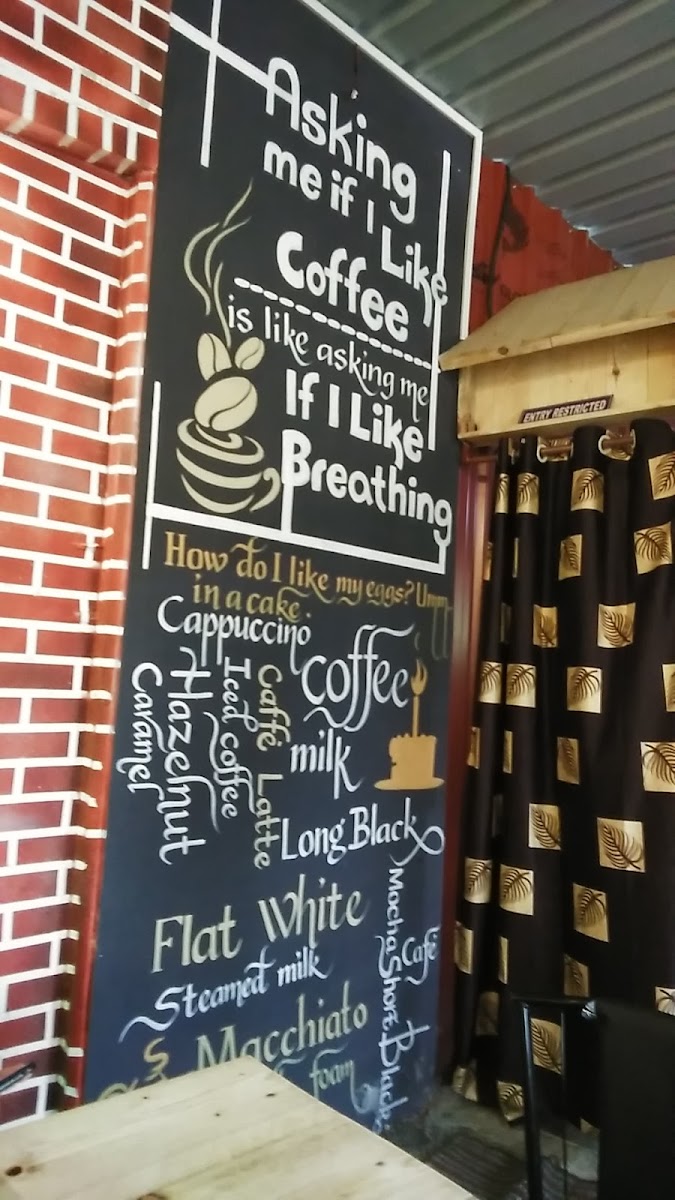 Asking
me if I Like
Coffee
is like asking me
If I Like
Breathing
ENTRY RESTRICTED
How do I like my eggs? Umm
in a cake.
Cappuccino
coffee
milk
Caramel
Hazelnut
Iced coffee
Caffé Latte
Long Black
Flat White
Steamed milk
Mocha
Café
Short Black
Macchiato
foam